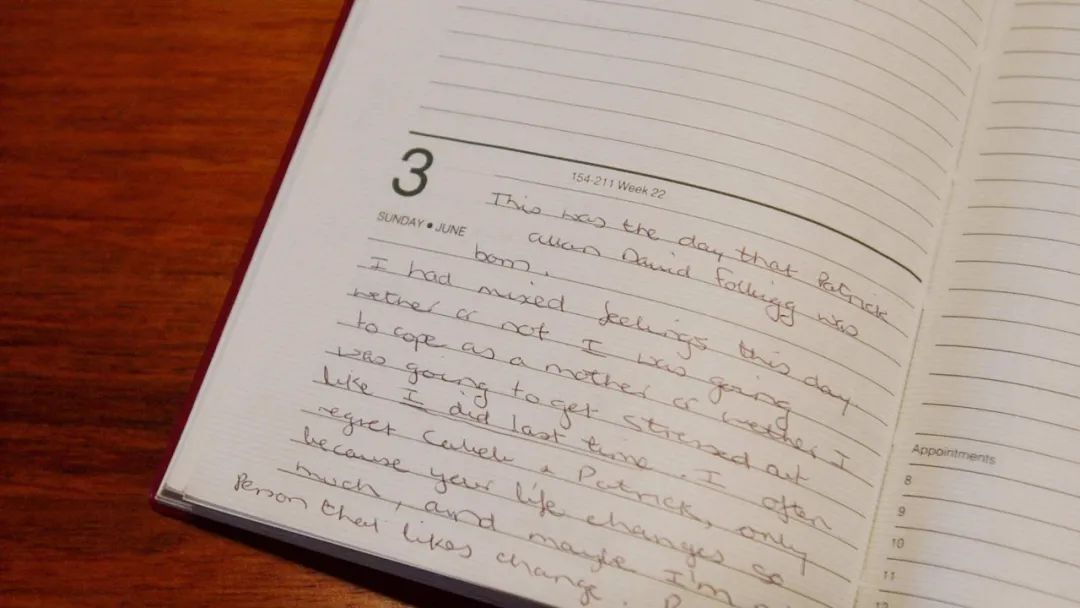 3
154-211 Week 22
SUNDAY • JUNE
This was the day that Patrick
allan David folbigg was
born.
I had mixed feelings this day
wether or not I was going
to cope as a mother or wether I
was going to get stressed out
like I did last time. I often
regret Caleb & Patrick, only
because your life changes so
much, and maybe I'm
Person that likes change.
Appointments
8
9
10
11
12